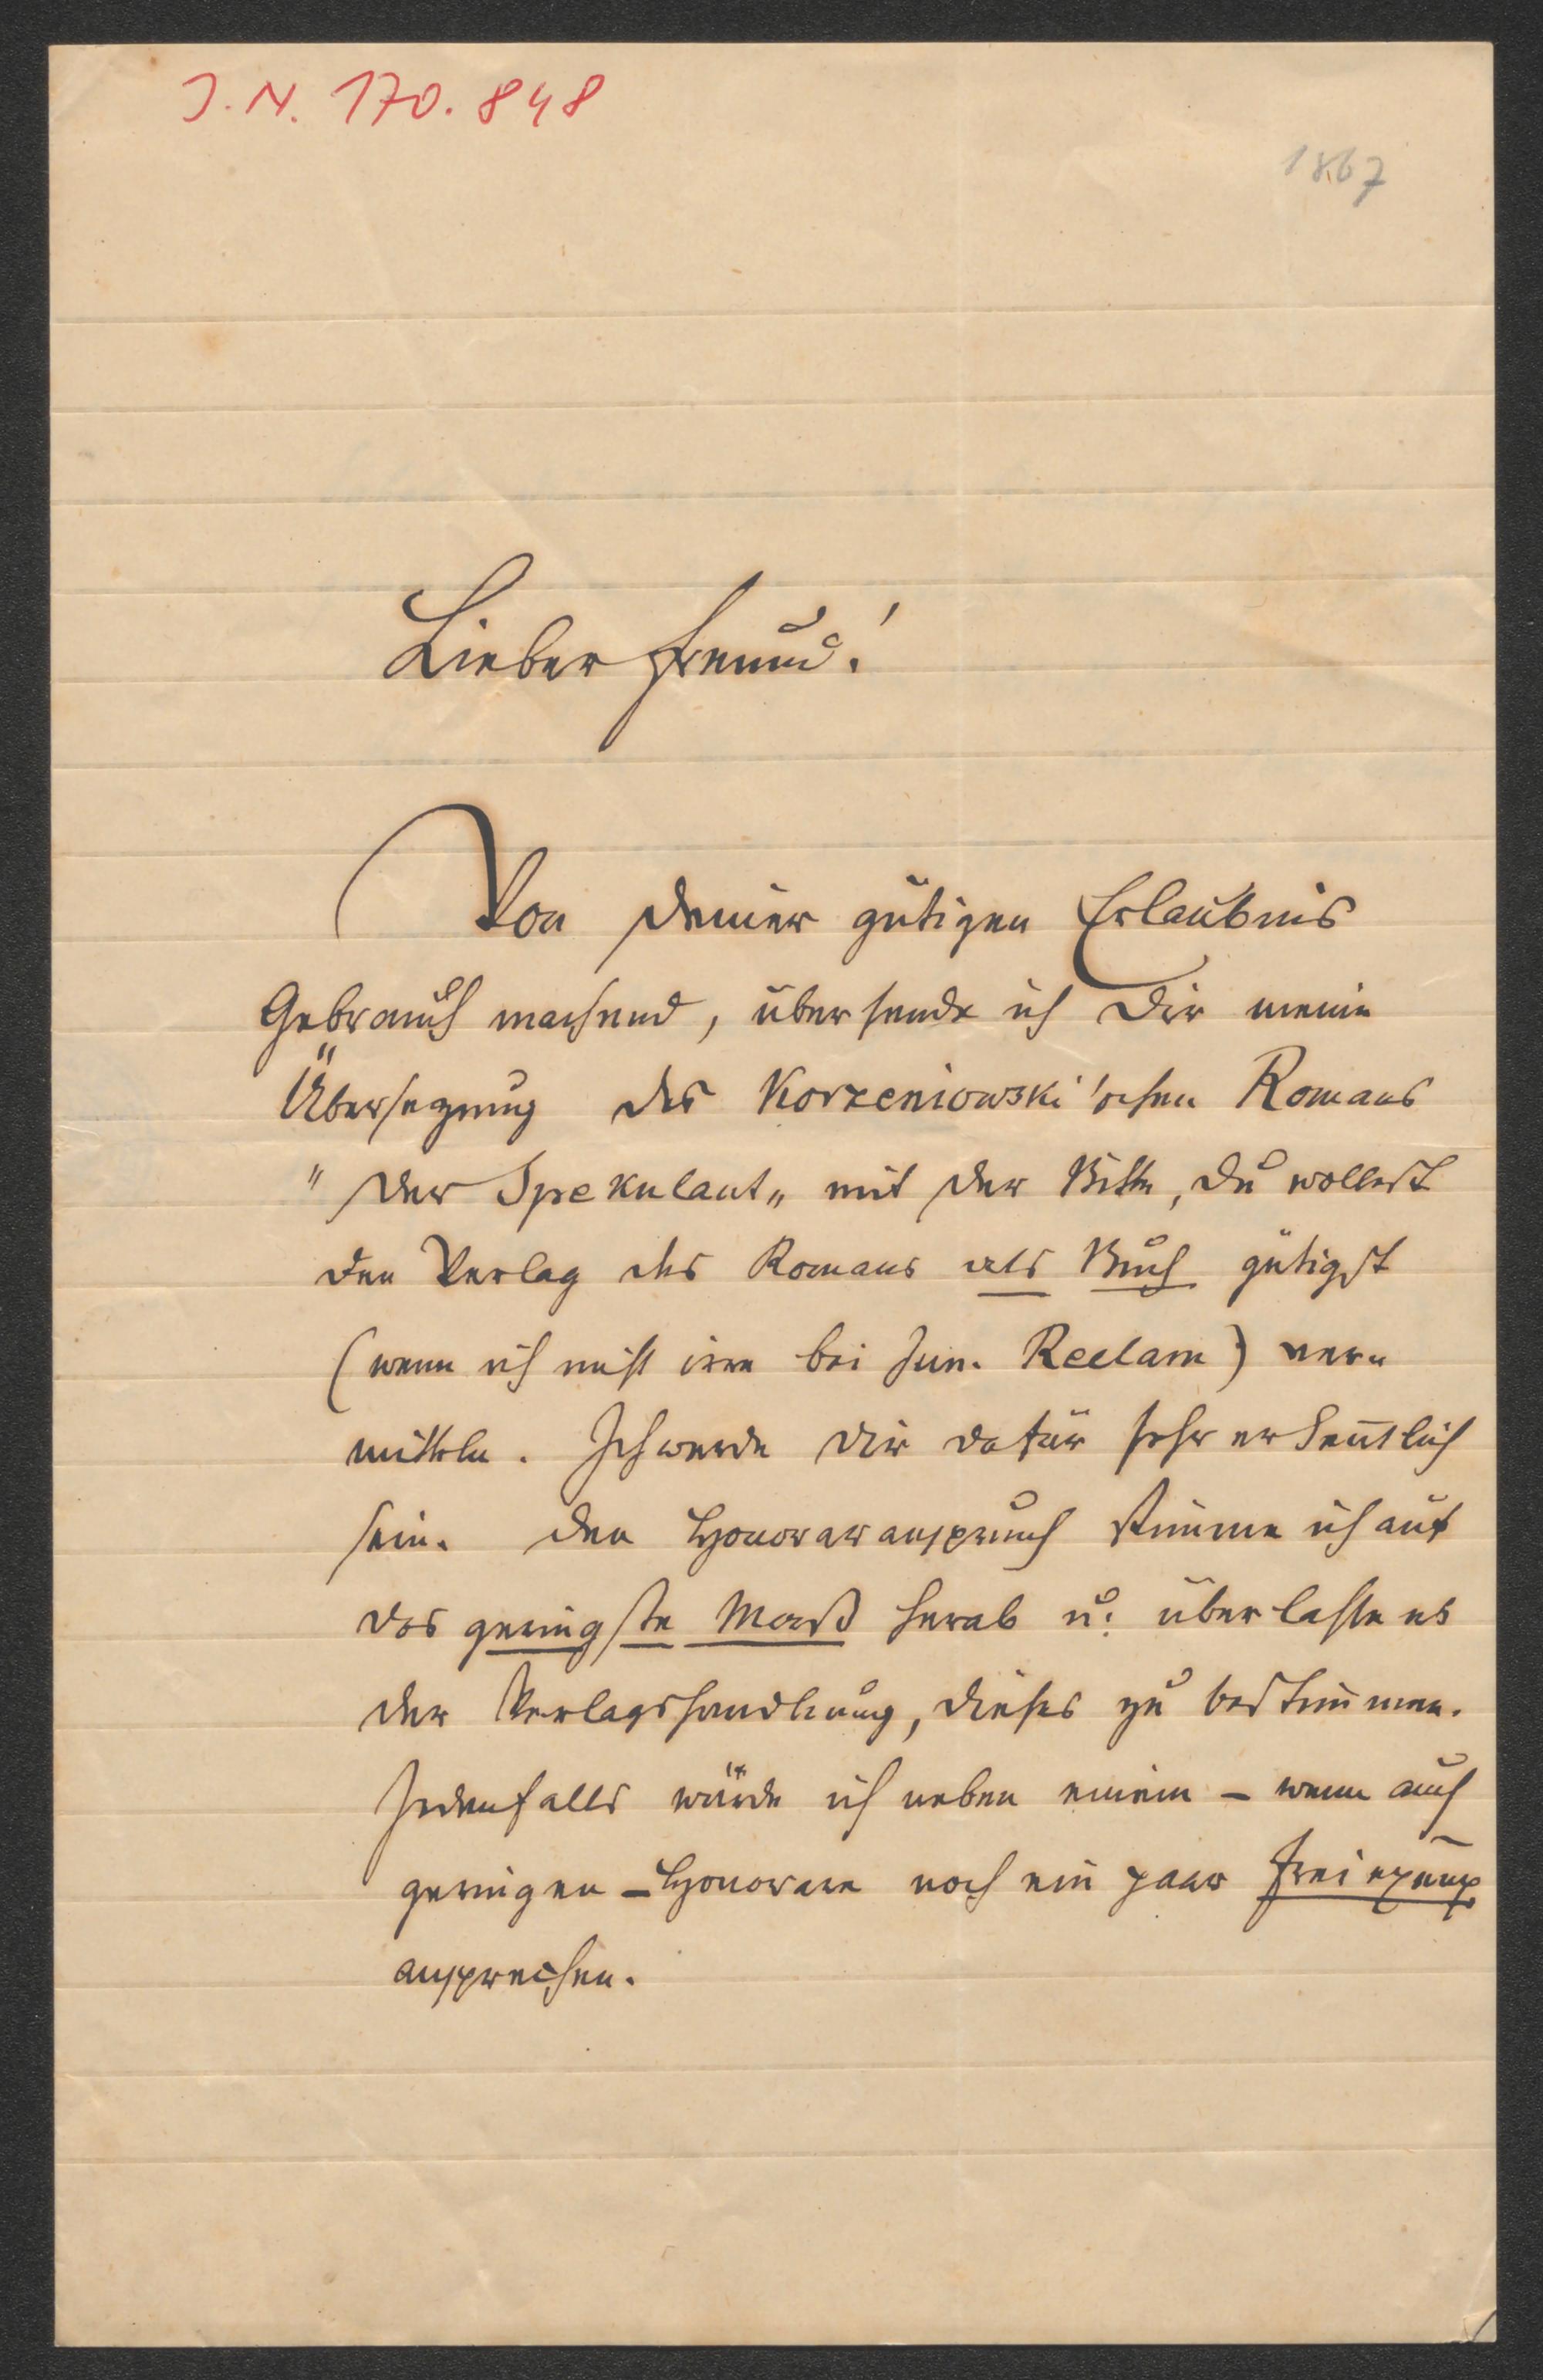 J. N. 170.848
1867
Lieber Freund!
Von Deiner gütigen Erlaubnis
Gebrauch machend, übersende ich Dir meine
Übersetzung des Korzeniowski'schen Romans
"Der Spekulant" mit der Bitte, Du wollest
den Verlag des Romans als Buch gütigst
(wenn ich nicht irre bei Jun. Reclam) ver-
mitteln. Ich werde Dir dafür sehr erkenntlich
sein. Den Honoraranspruch stimme ich auf
das geringste Maß herab u: überlasse es
der Verlagshandlung, dieses zu bestimmen.
Jedenfalls würde ich neben einem - wenn auch
geringen - Honorare noch ein paar Freiexemp
ansprechen.